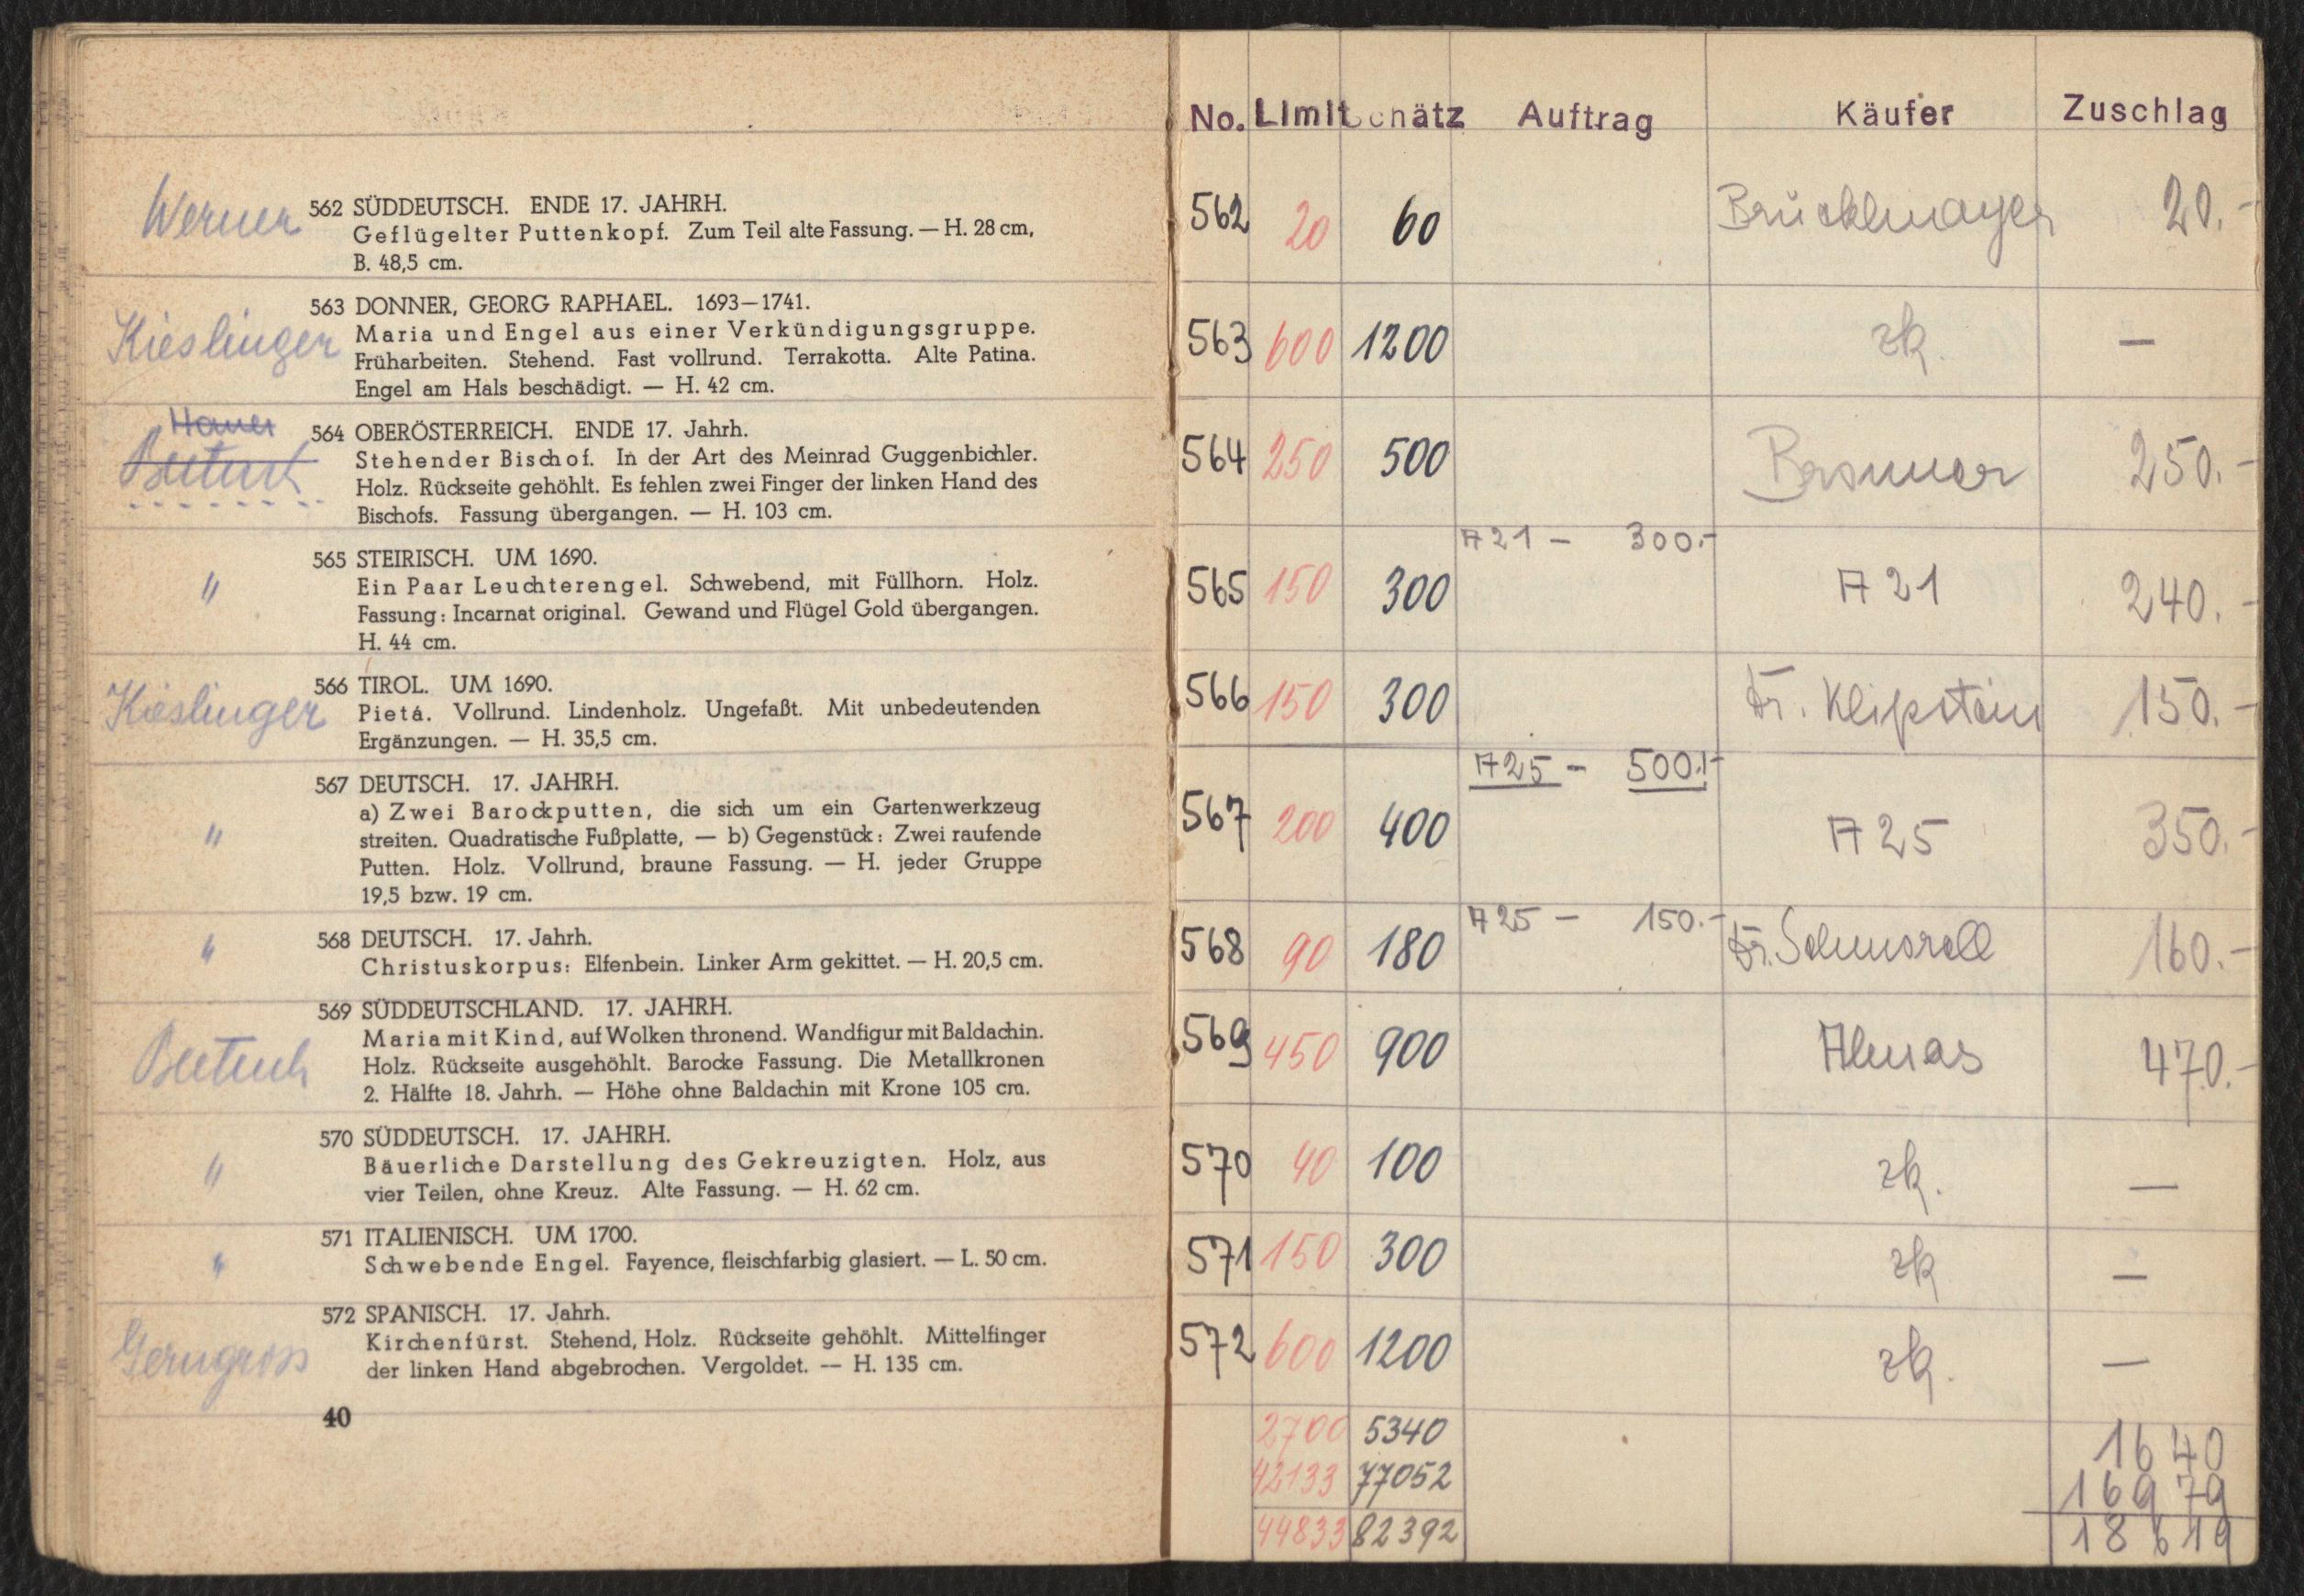 Werner
562 SÜDDEUTSCH. ENDE 17. JAHRH.
Geflügelter Puttenkopf. Zum Teil alte Fassung. — H. 28 cm,
B. 48,5 cm.
Kieslinger
563 DONNER, GEORG RAPHAEL. 1693–1741.
Maria und Engel aus einer Verkündigungsgruppe.
Früharbeiten. Stehend. Fast vollrund. Terrakotta. Alte Patina.
Engel am Hals beschädigt. — H. 42 cm.
564 OBERÖSTERREICH. ENDE 17. Jahrh.
Stehender Bischof. In der Art des Meinrad Guggenbichler.
Holz. Rückseite gehöhlt. Es fehlen zwei Finger der linken Hand des
Bischofs. Fassung übergangen. — H. 103 cm.
"
565 STEIRISCH. UM 1690.
Ein Paar Leuchterengel. Schwebend, mit Füllhorn. Holz.
Fassung: Incarnat original. Gewand und Flügel Gold übergangen.
H. 44 cm.
Kieslinger
566 TIROL. UM 1690.
Pietá. Vollrund. Lindenholz. Ungefaßt. Mit unbedeutenden
Ergänzungen. — H. 35,5 cm.
"
567 DEUTSCH. 17. JAHRH.
a) Zwei Barockputten, die sich um ein Gartenwerkzeug
streiten. Quadratische Fußplatte, — b) Gegenstück: Zwei raufende
Putten. Holz. Vollrund, braune Fassung. — H. jeder Gruppe
19,5 bzw. 19 cm.
"
568 DEUTSCH. 17. Jahrh.
Christuskorpus: Elfenbein. Linker Arm gekittet. — H. 20,5 cm.
569 SÜDDEUTSCHLAND. 17. JAHRH.
Maria mit Kind, auf Wolken thronend. Wandfigur mit Baldachin.
Holz. Rückseite ausgehöhlt. Barocke Fassung. Die Metallkronen
2. Hälfte 18. Jahrh. — Höhe ohne Baldachin mit Krone 105 cm.
"
570 SÜDDEUTSCH. 17. JAHRH.
Bäuerliche Darstellung des Gekreuzigten. Holz, aus
vier Teilen, ohne Kreuz. Alte Fassung. — H. 62 cm.
"
571 ITALIENISCH. UM 1700.
Schwebende Engel. Fayence, fleischfarbig glasiert. — L. 50 cm.
Gerngross
572 SPANISCH. 17. Jahrh.
Kirchenfürst. Stehend, Holz. Rückseite gehöhlt. Mittelfinger
der linken Hand abgebrochen. Vergoldet. — H. 135 cm.
40
No. Limit Schätz Auftrag Käufer Zuschlag
562 20 60 Brücklmayer 20.-
563 600 1200 zk. —
564 250 500 250.-
A 21 — 300.-
565 150 300 A 21 240.-
566 150 300 Dr. Klipstein 150.-
A 25 — 500.-
567 200 400 A 25 350.-
A 25 — 150.-
568 90 180 Dr. 160.-
569 450 900 Almas 470.-
570 40 100 zk. —
571 150 300 zk —
572 600 1200 zk. —
2700 5340 1640
42133 77052 16979
44833 82392 18619